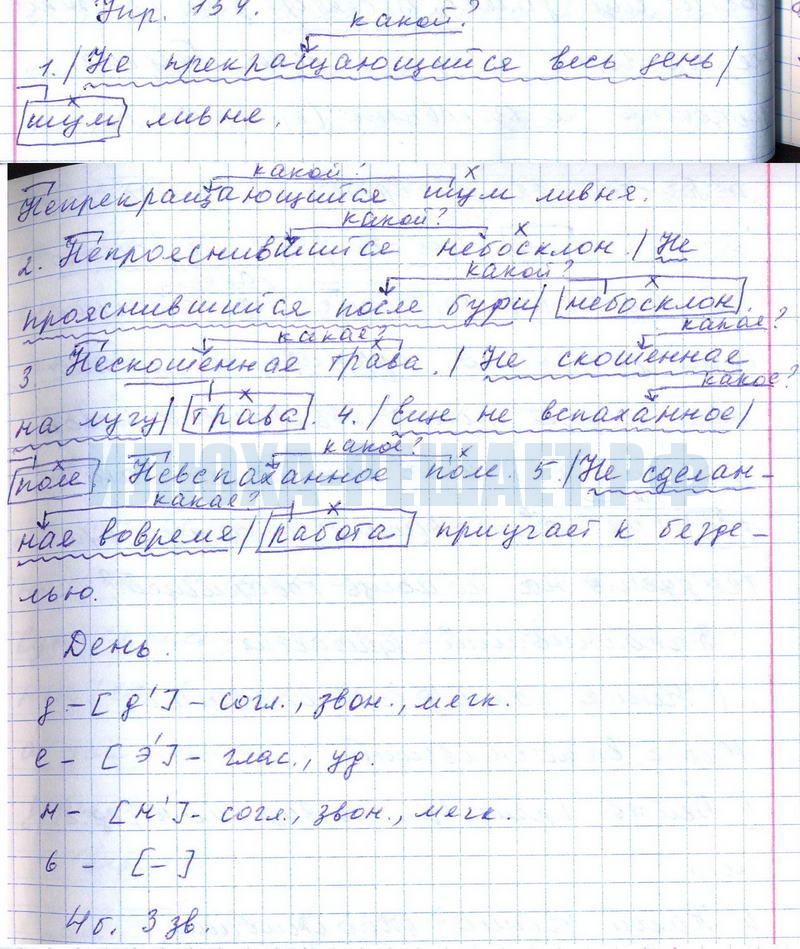 Упр. 154.
какой?
1. / Не прекращающийся весь день /
шум ливня.
какой?
Непрекращающийся шум ливня.
какой?
2. Непрояснившийся небосклон. / Не
какой?
прояснившийся после бури / небосклон.
какая? какая?
3 Нескошенная трава. / Не скошенная
какое?
на лугу / трава. 4. / Еще не вспаханное /
какое?
поле. Невспаханное поле. 5. / Не сделан-
какая?
ная вовремя / работа приучает к безде-
лью.
ИЛЮХА-РЕШАЕТ.РФ
День.
д – [д'] – согл., звон., мягк.
е – [э'] – глас., уд.
н – [н'] – согл., звон., мягк.
ь – [–]
4 б. 3 зв.